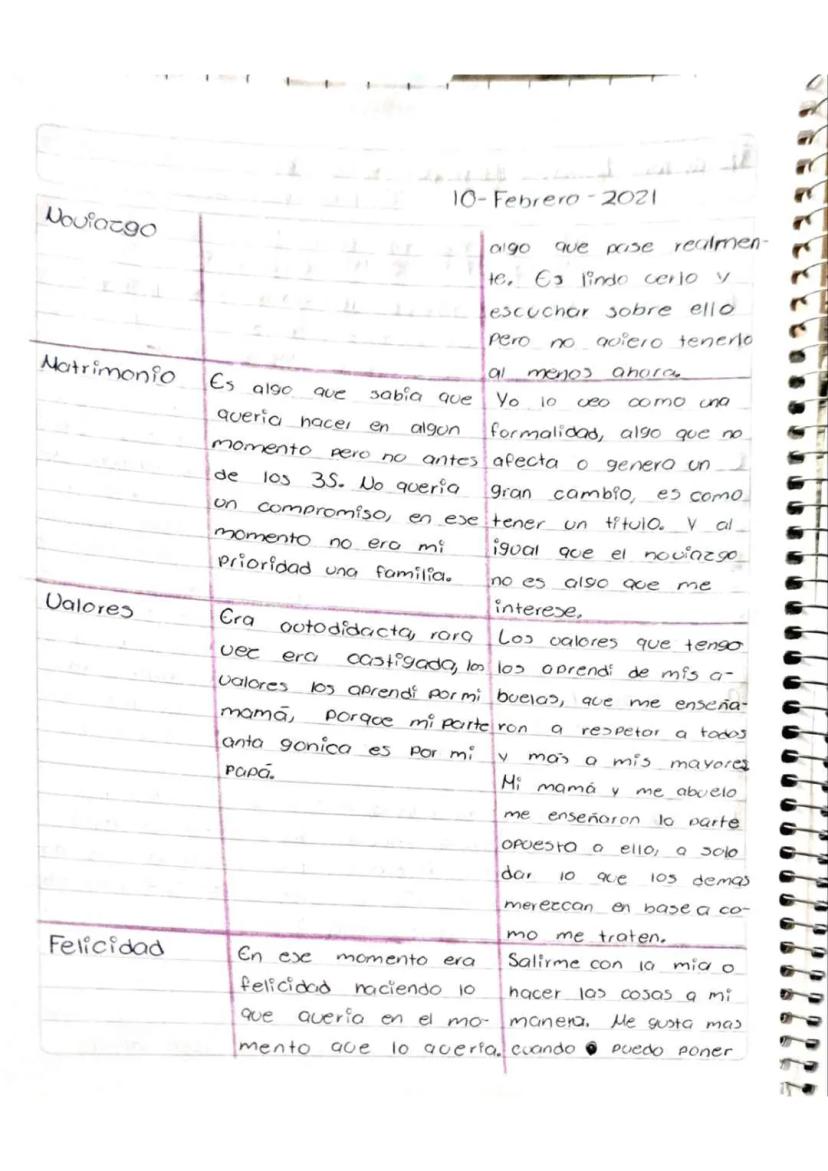 10-Febrero-2021
Noviazgo
algo que pase realmen-
te. Es lindo verlo y
escuchar sobre ello
pero no quiero tenerlo
al menos ahora.
Matrimonio
Es algo que sabía que
quería hacer en algún
momento pero no antes
de los 35. No quería
un compromiso, en ese
momento no era mi
prioridad una familia.
Yo lo veo como una
formalidad, algo que no
afecta o genera un
gran cambio, es como
tener un título. Y al
igual que el noviazgo
no es algo que me
interese.
Valores
Era autodidacta, rara
vez era castigada, los
valores los aprendí por mi
mamá, porque mi parte
anta gonica es por mi
papá.
Los valores que tengo
los aprendí de mis a-
buelas, que me enseña-
ron a respetar a todos
y más a mis mayores
Mi mamá y me abuelo
me enseñaron la parte
opuesta a ello, a solo
dar lo que los demas
merezcan en base a co-
mo me traten.
Felicidad
En ese momento era
felicidad haciendo lo
que quería en el mo-
mento que lo quería.
Salirme con la mía o
hacer las cosas a mi
manera. Me gusta mas
cuando puedo poner